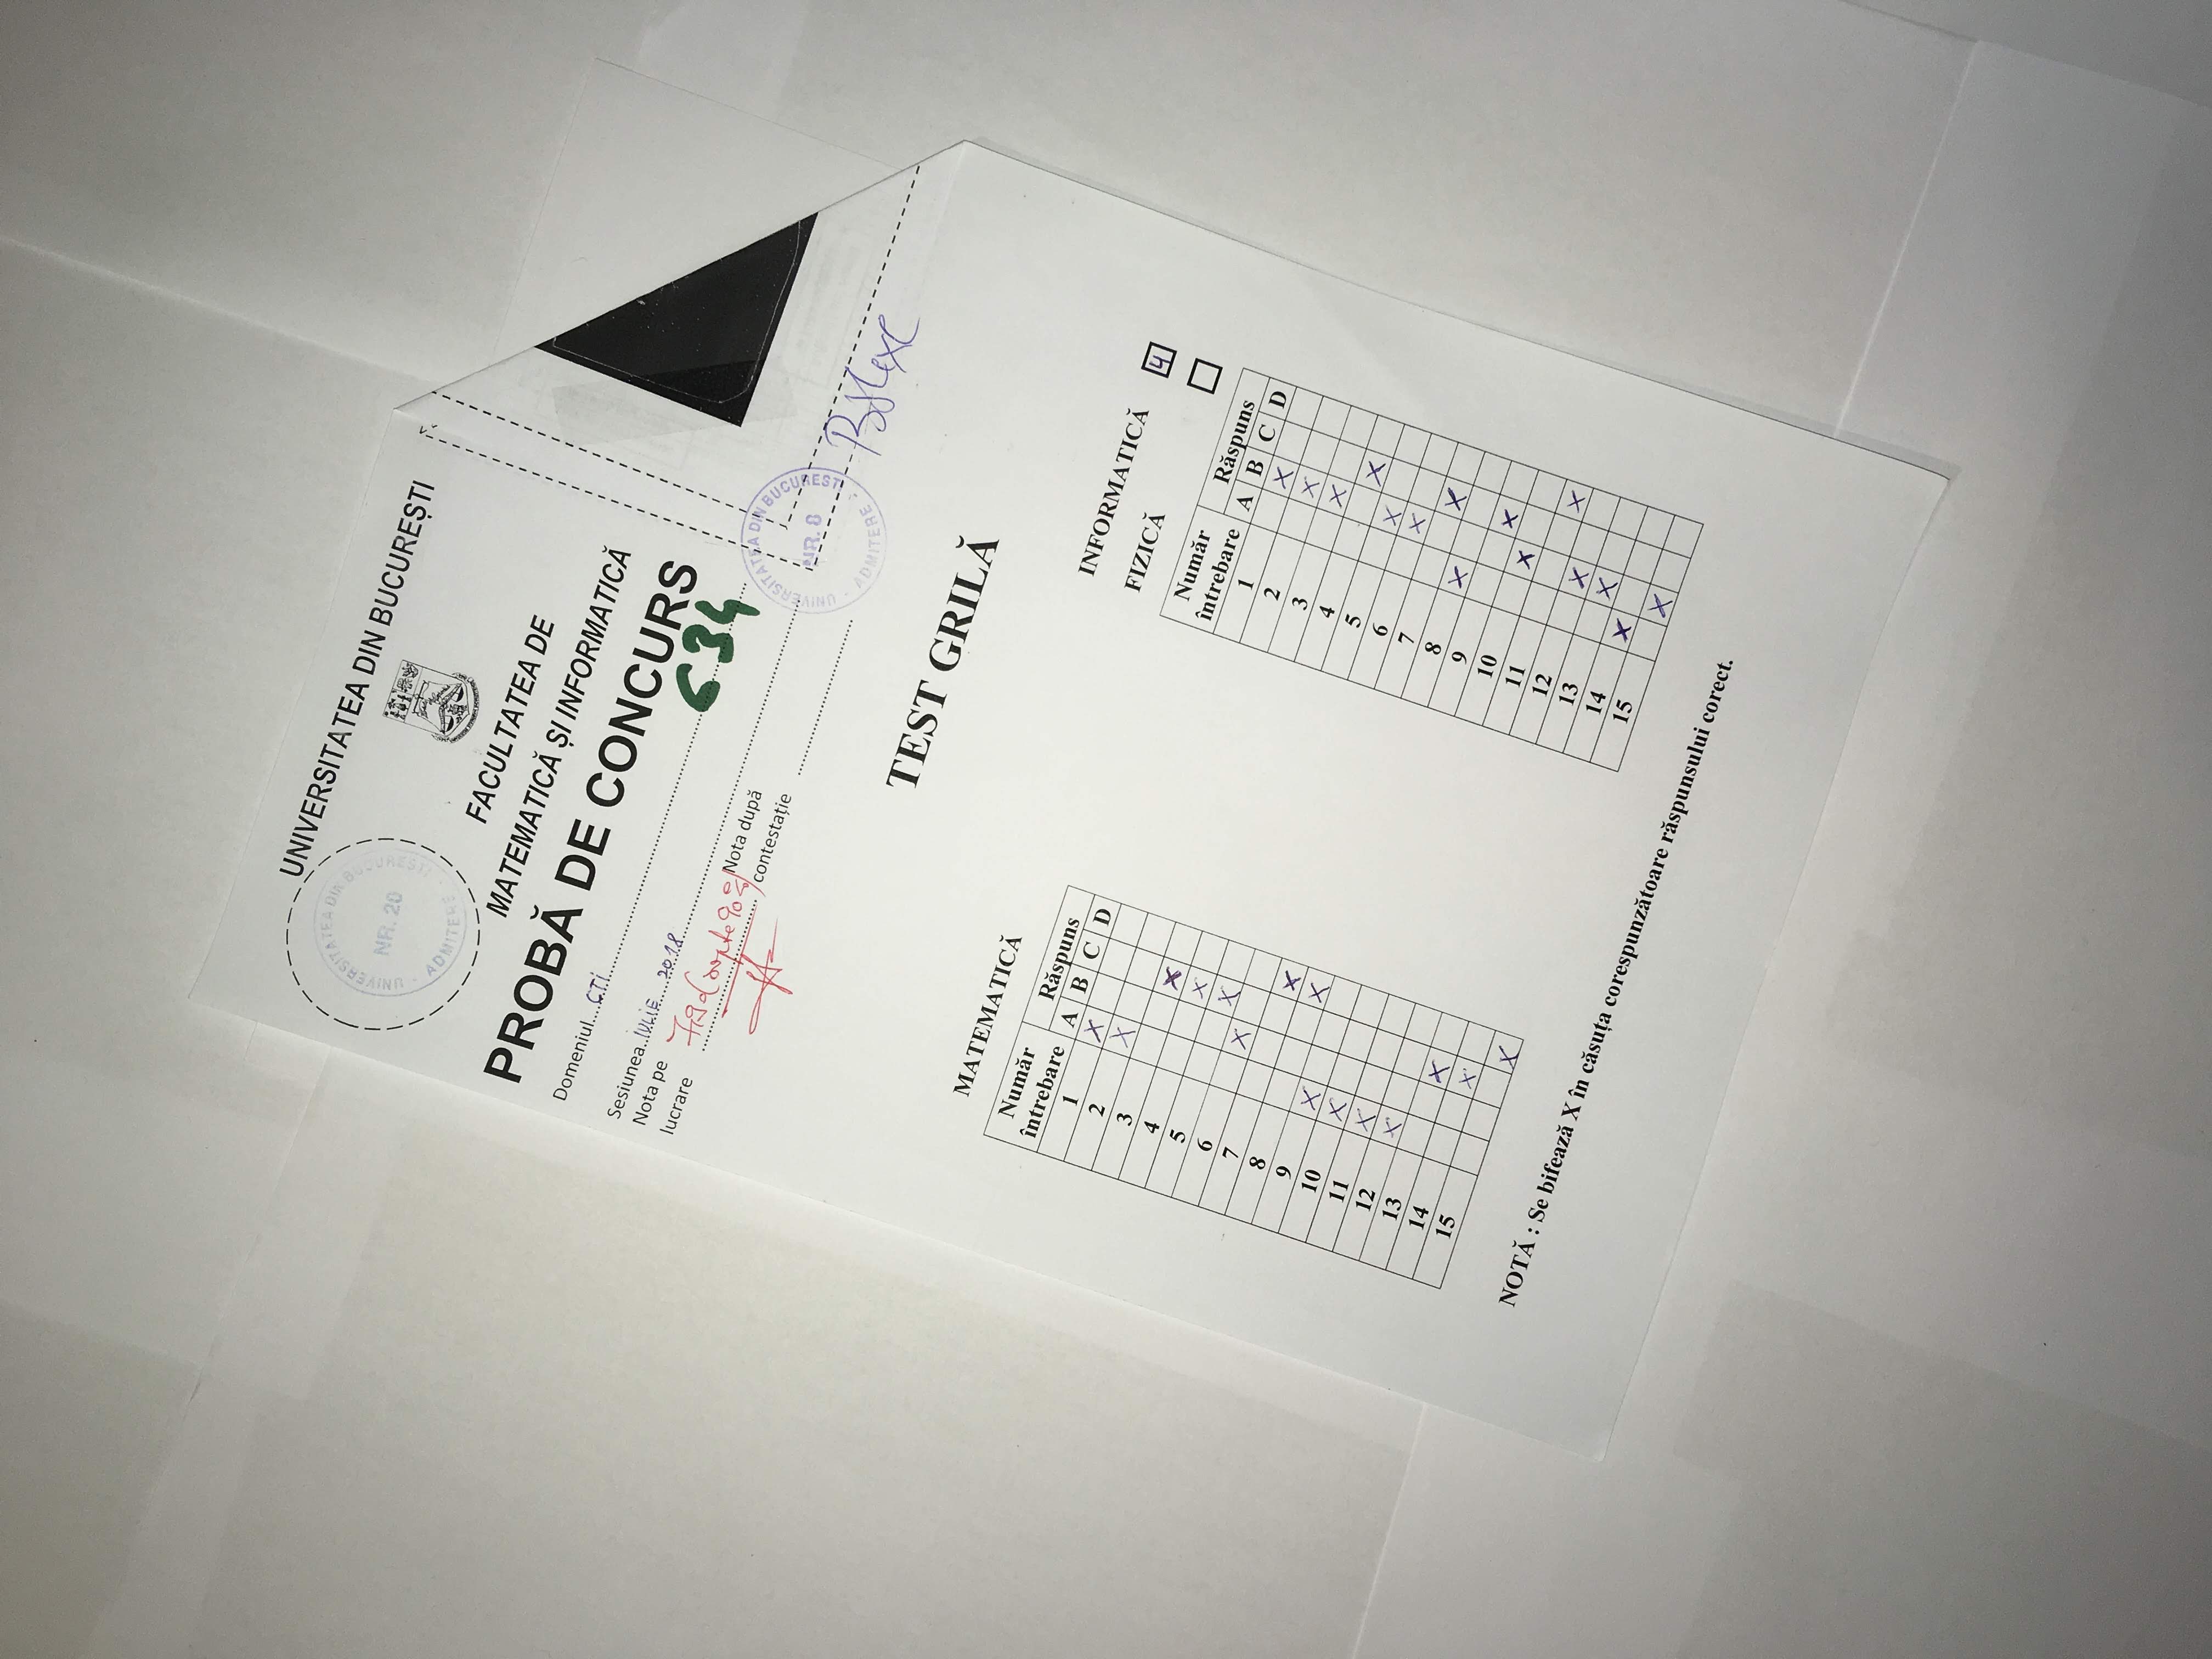 UNIVERSITATEA DIN BUCUREȘTI
UNIVERSITATEA DIN BUCUREȘTI
NR. 20
ADMITERE
FACULTATEA DE
MATEMATICĂ ȘI INFORMATICĂ
PROBĂ DE CONCURS
Domeniul CTi
634
Sesiunea iULIE 2018
Nota pe
lucrare
Nota după
contestație
UNIVERSITATEA DIN BUCUREȘTI
NR. 8
ADMITERE
TEST GRILĂ
MATEMATICĂ
Număr
întrebare
Răspuns
A B C D
1 X
2 X
3 X
4 X
5 X
6 X
7 X
8 X
9 X
10 X
11 X
12 X
13 X
14 X
15 X
INFORMATICĂ 4
FIZICĂ
Număr
întrebare
Răspuns
A B C D
1 X
2 X
3 X
4 X
5 X
6 X
7 X
8 X
9 X
10 X
11 X
12 X
13 X
14 X
15 X
NOTĂ : Se bifează X în căsuța corespunzătoare răspunsului corect.